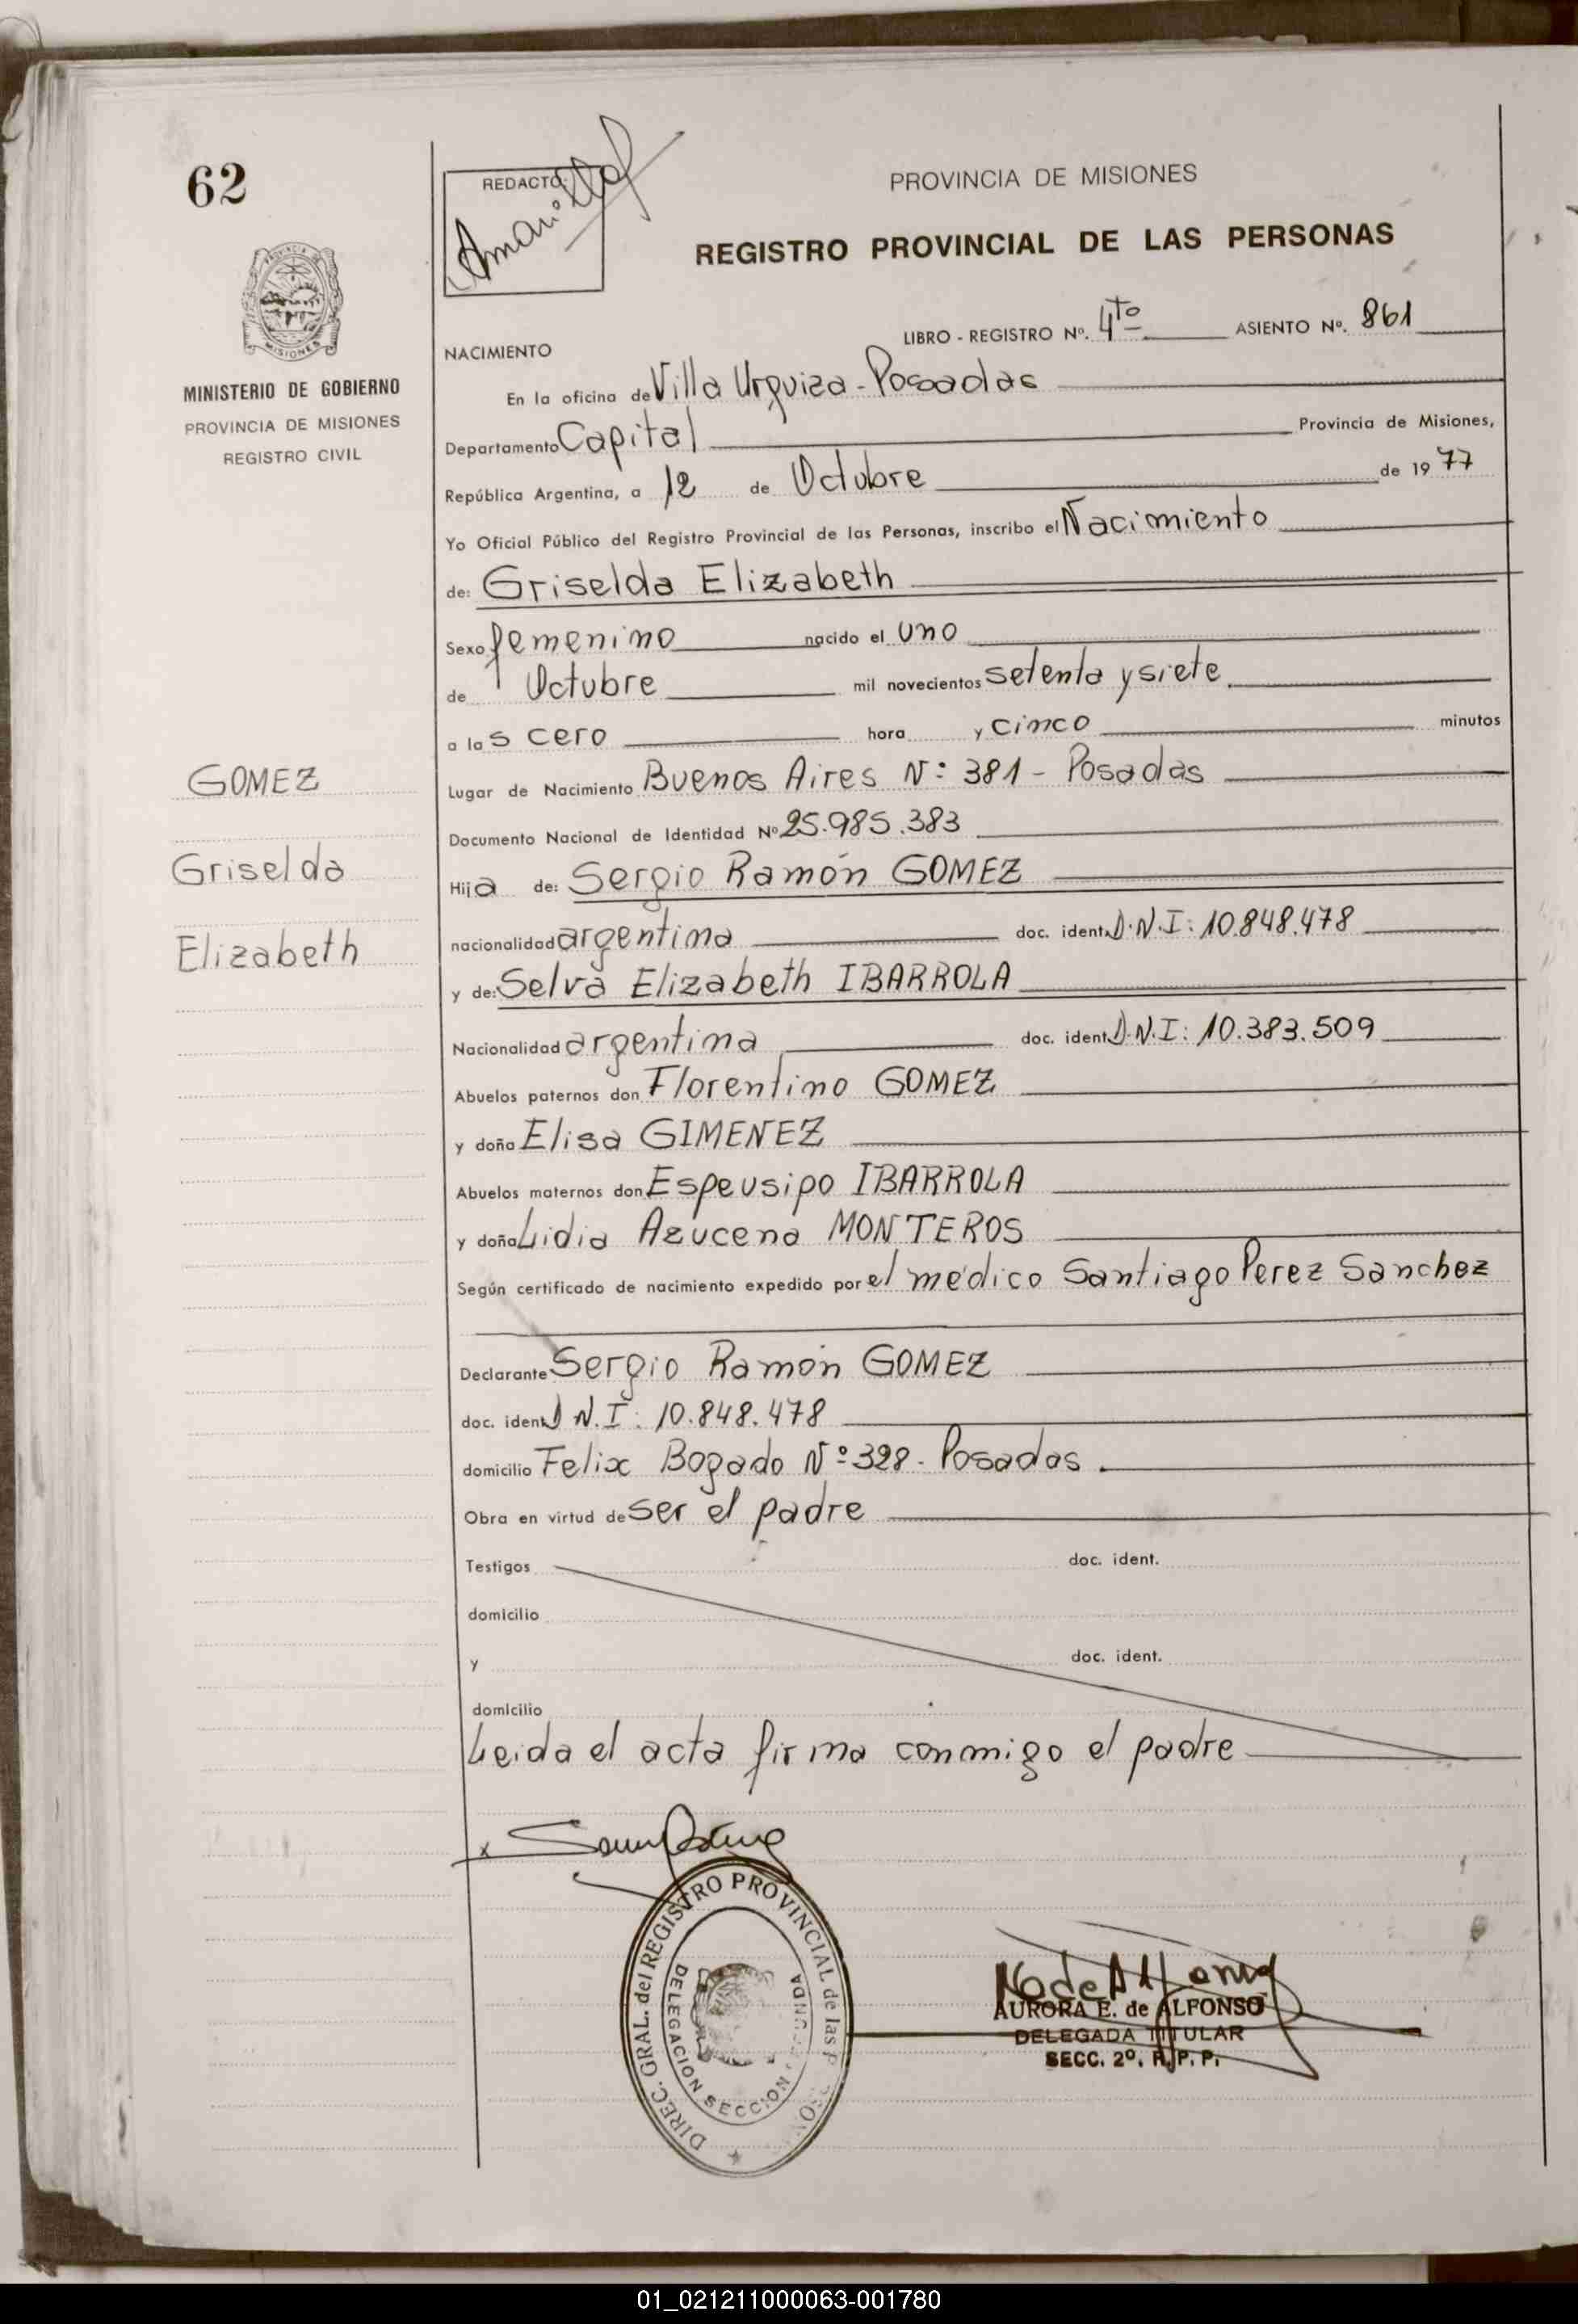 62
REDACTO:
PROVINCIA DE MISIONES
REGISTRO PROVINCIAL DE LAS PERSONAS
MISIONES
MINISTERIO DE GOBIERNO
PROVINCIA DE MISIONES
REGISTRO CIVIL
LIBRO - REGISTRO Nº. 4to ASIENTO Nº. 861
NACIMIENTO
En la oficina de Villa Urquiza - Posadas
Departamento Capital Provincia de Misiones,
República Argentina, a 12 de Octubre de 1977
Yo Oficial Público del Registro Provincial de las Personas, inscribo el Nacimiento
de: Griselda Elizabeth
Sexo femenino nacido el uno
de Octubre mil novecientos setenta y siete
a las cero hora y cinco minutos
Lugar de Nacimiento Buenos Aires Nº: 381 - Posadas
Documento Nacional de Identidad Nº 25.985.383
GOMEZ
Griselda
Elizabeth
Hija de: Sergio Ramón GOMEZ
nacionalidad argentina doc. ident. D.N.I: 10.848.478
y de: Selva Elizabeth IBARROLA
Nacionalidad argentina doc. ident. D.N.I: 10.383.509
Abuelos paternos don Florentino GOMEZ
y doña Elisa GIMENEZ
Abuelos maternos don Espeusipo IBARROLA
y doña Lidia Azucena MONTEROS
Según certificado de nacimiento expedido por el médico Santiago Perez Sanchez
Declarante Sergio Ramón GOMEZ
doc. ident. D N.I: 10.848.478
domicilio Felix Bogado Nº 328 - Posadas.
Obra en virtud de ser el padre
Testigos doc. ident.
domicilio
y doc. ident.
domicilio
Leida el acta firma conmigo el padre
DIREC. GRAL. del REGISTRO PROVINCIAL de las
DELEGACION SECCION
AURORA E. de ALFONSO
DELEGADA TITULAR
SECC. 2º. R. P. P.
01_021211000063-001780